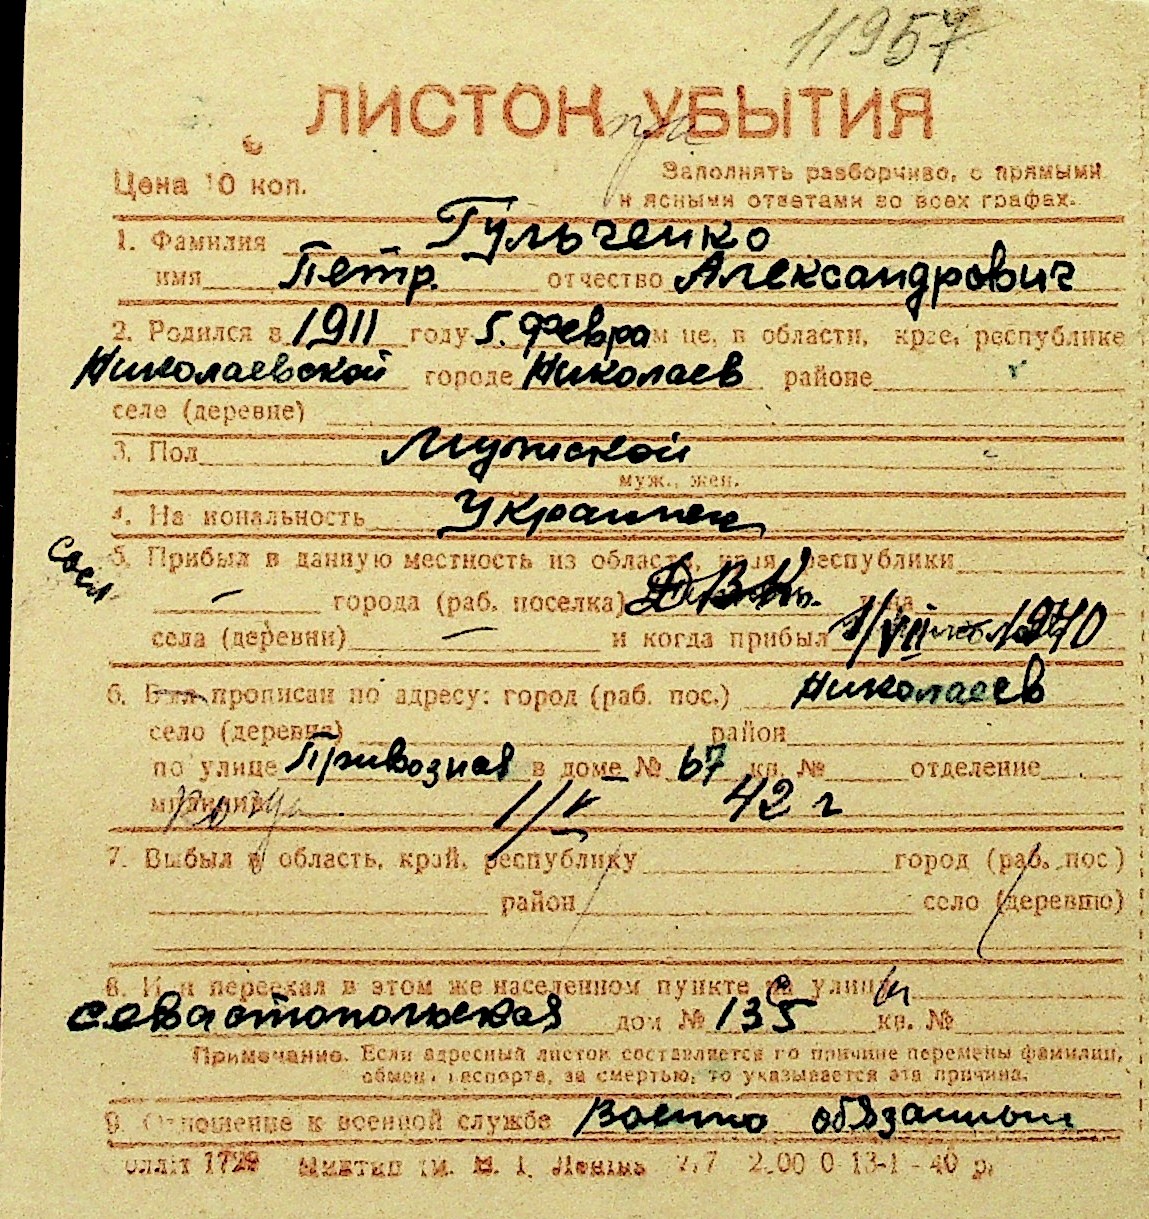 11957
ЛИСТОК УБЫТИЯ
Цена 10 коп.
Заполнять разборчиво, с прямыми
и ясными ответами во всех графах.
1. Фамилия Гульченко
имя Петр. отчество Александрович
2. Родился в 1911 году 5. февра м-це, в области, крае, республике
Николаевской городе Николаев районе
селе (деревне)
3. Пол Мужской
муж., жен.
4. Национальность Украинец
5. Прибыл в данную местность из области, края, республики
города (раб. поселка) Д.В.К.
села (деревни) — и когда прибыл 1/VII 1940
6. прописан по адресу: город (раб. пос.) Николаев
село (деревня) район
по улице Привозная в доме № 67 кв. № отделение
милиции когда 1/V 42 г
7. Выбыл в область, край, республику город (раб. пос.)
район село (деревню)
8. Или переехал в этом же населенном пункте на улицу
Севастопольская дом № 135 кв. №
Примечание. Если адресный листок составляется по причине перемены фамилии,
обмена паспорта, за смертью, то указывается эта причина.
9. Отношение к военной службе Военно обязанный
1729 ім. В. І. Леніна 13-1-40 р.